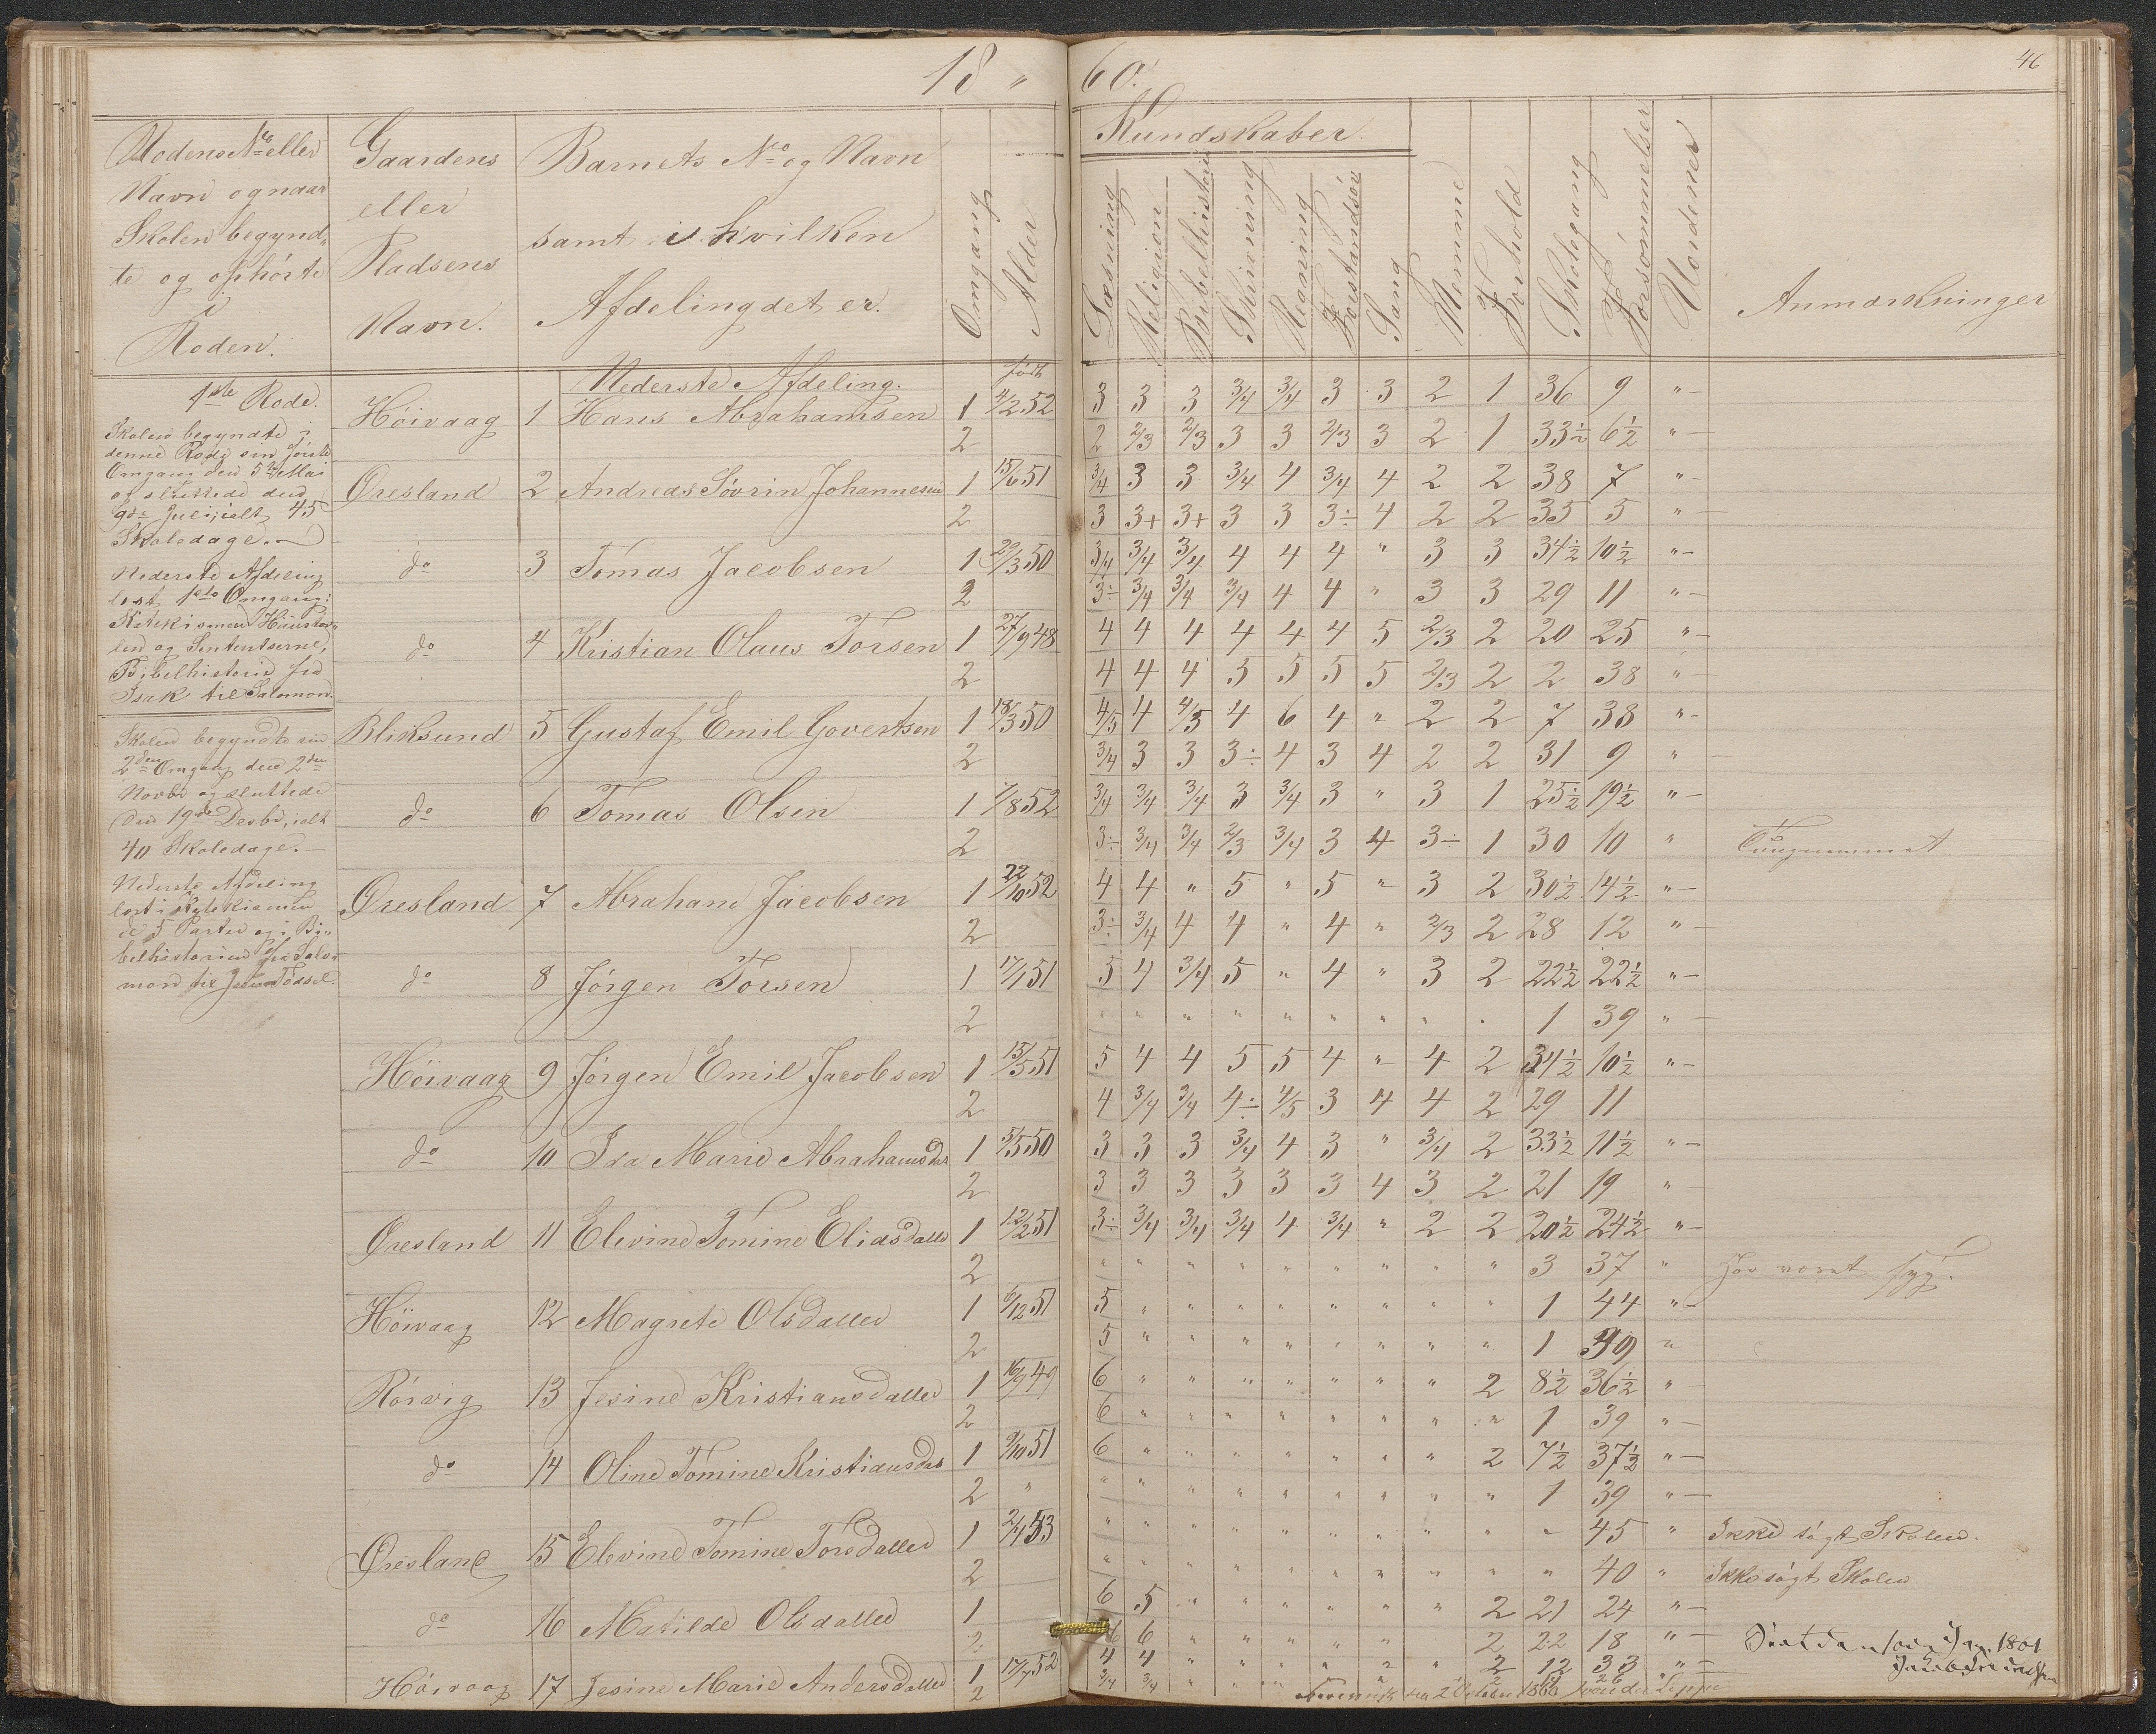 18 " 60.
46
Rodens No eller
Navn og naar
Skolen begynd-
te og ophørte
i
Roden.
Gaardens
eller
Pladsens
Navn.
Barnets No og Navn
samt i hvilken
Afdeling det er.
Omgang
Alder
Kundskaber.
Læsning
Religion
Bibelhistorie
Skrivning
Regning
Forstandsøv
Sang
Nemme
Forhold
Skolegang
Forsømmelser
Uordener
Anmærkninger
1ste Rode.
Skolen begyndte i
denne Rode sin første
Omgang den 5te Mai
og sluttede den
9de Juli, ialt 45
Skoledage.
Nederste Afdeling
læst 1ste Omgang:
Katekismen Huustav-
len og Sententserne,
Bibelhistorie fra
Isak til Salomon.
Skolen begyndte sin
2den Omgang den 2den
Novbr og sluttede
den 19de Decbr, ialt
40 Skoledage.
Nederste Afdeling
læst i Katekismen
de 5 Parter og i Bi-
belhistorien fra Salo-
mon til Jesu Fødsel.
Nederste Afdeling. født
Høivaag 1 Hans Abrahamsen 1 4/2 52 3 3 3 3/4 3/4 3 3 2 1 36 9 "
2 2 2/3 2/3 3 3 2/3 3 2 1 33½ 6½ "
Øresland 2 Andreas Søvrin Johannesen 1 15/6 51 3/4 3 3 3/4 4 3/4 4 2 2 38 7 "
2 3 3+ 3+ 3 3 3÷ 4 2 2 35 5 "
do 3 Tomas Jacobsen 1 20/3 50 3/4 3/4 3/4 4 4 4 " 3 3 34½ 10½ "
2 3÷ 3/4 3/4 3/4 4 4 " 3 3 29 11 "
do 4 Kristian Olaus Torsen 1 27/9 48 4 4 4 4 4 4 5 2/3 2 20 25 "
2 4 4 4 5 5 5 5 2/3 2 2 38 "
Bliksund 5 Gustaf Emil Govertsen 1 18/3 50 4/5 4 4/5 4 6 4 " 2 2 7 38 "
2 3/4 3 3 3÷ 4 3 4 2 2 31 9 "
do 6 Tomas Olsen 1 7/8 52 3/4 3/4 3/4 3 3/4 3 " 3 1 25½ 19½ "
2 3÷ 3/4 3/4 2/3 3/4 3 4 3÷ 1 30 10 " Tungnemmet
Øresland 7 Abraham Jacobsen 1 22/10 52 4 4 " 5 " 5 " 3 2 30½ 14½ "
2 3÷ 3/4 4 4 " 4 " 2/3 2 28 12 "
do 8 Jørgen Torsen 1 17/1 51 5 4 3/4 5 " 4 " 3 2 22½ 22½ "
2 " " " " " " " " " 1 39 "
Høivaag 9 Jørgen Emil Jacobsen 1 15/5 51 5 4 4 5 5 4 " 4 2 34½ 10½ "
2 4 3/4 3/4 4÷ 4/5 3 4 4 2 29 11
do 10 Ida Marie Abrahamsdat 1 5/5 50 3 3 3 3/4 4 3 " 3/4 2 33½ 11½ "
2 3 3 3 3 3 3 4 3 2 21 19 "
Øresland 11 Elevine Tomine Eliasdatter 1 12/2 51 3÷ 3/4 3/4 3/4 4 3/4 " 2 2 20½ 24½ "
2 " " " " " " " " " 3 37 " har været syg.
Høivaag 12 Magrete Olsdatter 1 6/12 51 5 " " " " " " " " 1 44 "
2 5 " " " " " " " " 1 39 "
Rørvig 13 Jesine Kristiansdatter 1 16/9 49 6 " " " " " " " 2 8½ 36½ "
2 6 " " " " " " " " 1 39 "
do 14 Oline Tomine Kristiansdat 1 9/10 51 6 " " " " " " " 2 7½ 37½ "
2 " " " " " " " " " " 1 39 "
Øresland 15 Elevine Tomine Torsdatter 1 2/4 53 " " " " " " " " " " 45 " Ikke søgt Skolen.
2 " " " " " " " " " " 40 " Ikke søgt Skolen
do 16 Matilde Olsdatter 1 6 5 " " " " " " 2 21 24 "
2 6 6 " " " " " 2 22 18 "
Høivaag 17 Jesine Marie Andersdatter 1 17/7 52 4 4 " " " " " " 2 12 33 "
2 3/4 3/4 " " " 2 14 26 "
2 October 1860
Jan. 1861